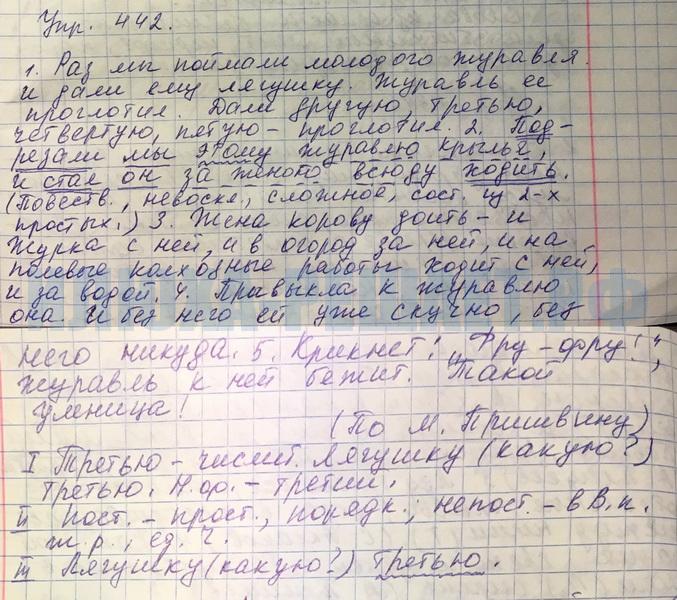 Упр. 442.
1. Раз мы поймали молодого журавля
и дали ему лягушку. Журавль ее
проглотил. Дали другую, третью,
четвертую, пятую – проглотил. 2. Под-
резали мы этому журавлю крылья,
и стал он за женою всюду ходить.
(Повеств., невоскл., сложное, сост. из 2-х
простых.) 3. Жена корову доить – и
Журка с ней, и в огород за ней, и на
полевые колхозные работы ходит с ней,
и за водой. 4. Привыкла к журавлю
она. И без него ей уже скучно, без
него никуда. 5. Крикнет: „Фру-фру!",
журавль к ней бежит. Такой
умница!
(По М. Пришвину)
I Третью – числит. Лягушку (какую?)
третью. Н.ф. – третий.
II Пост. – прост., порядк.; непост. – в В.п.
ж.р., ед.ч.
III Лягушку (какую?) третью.